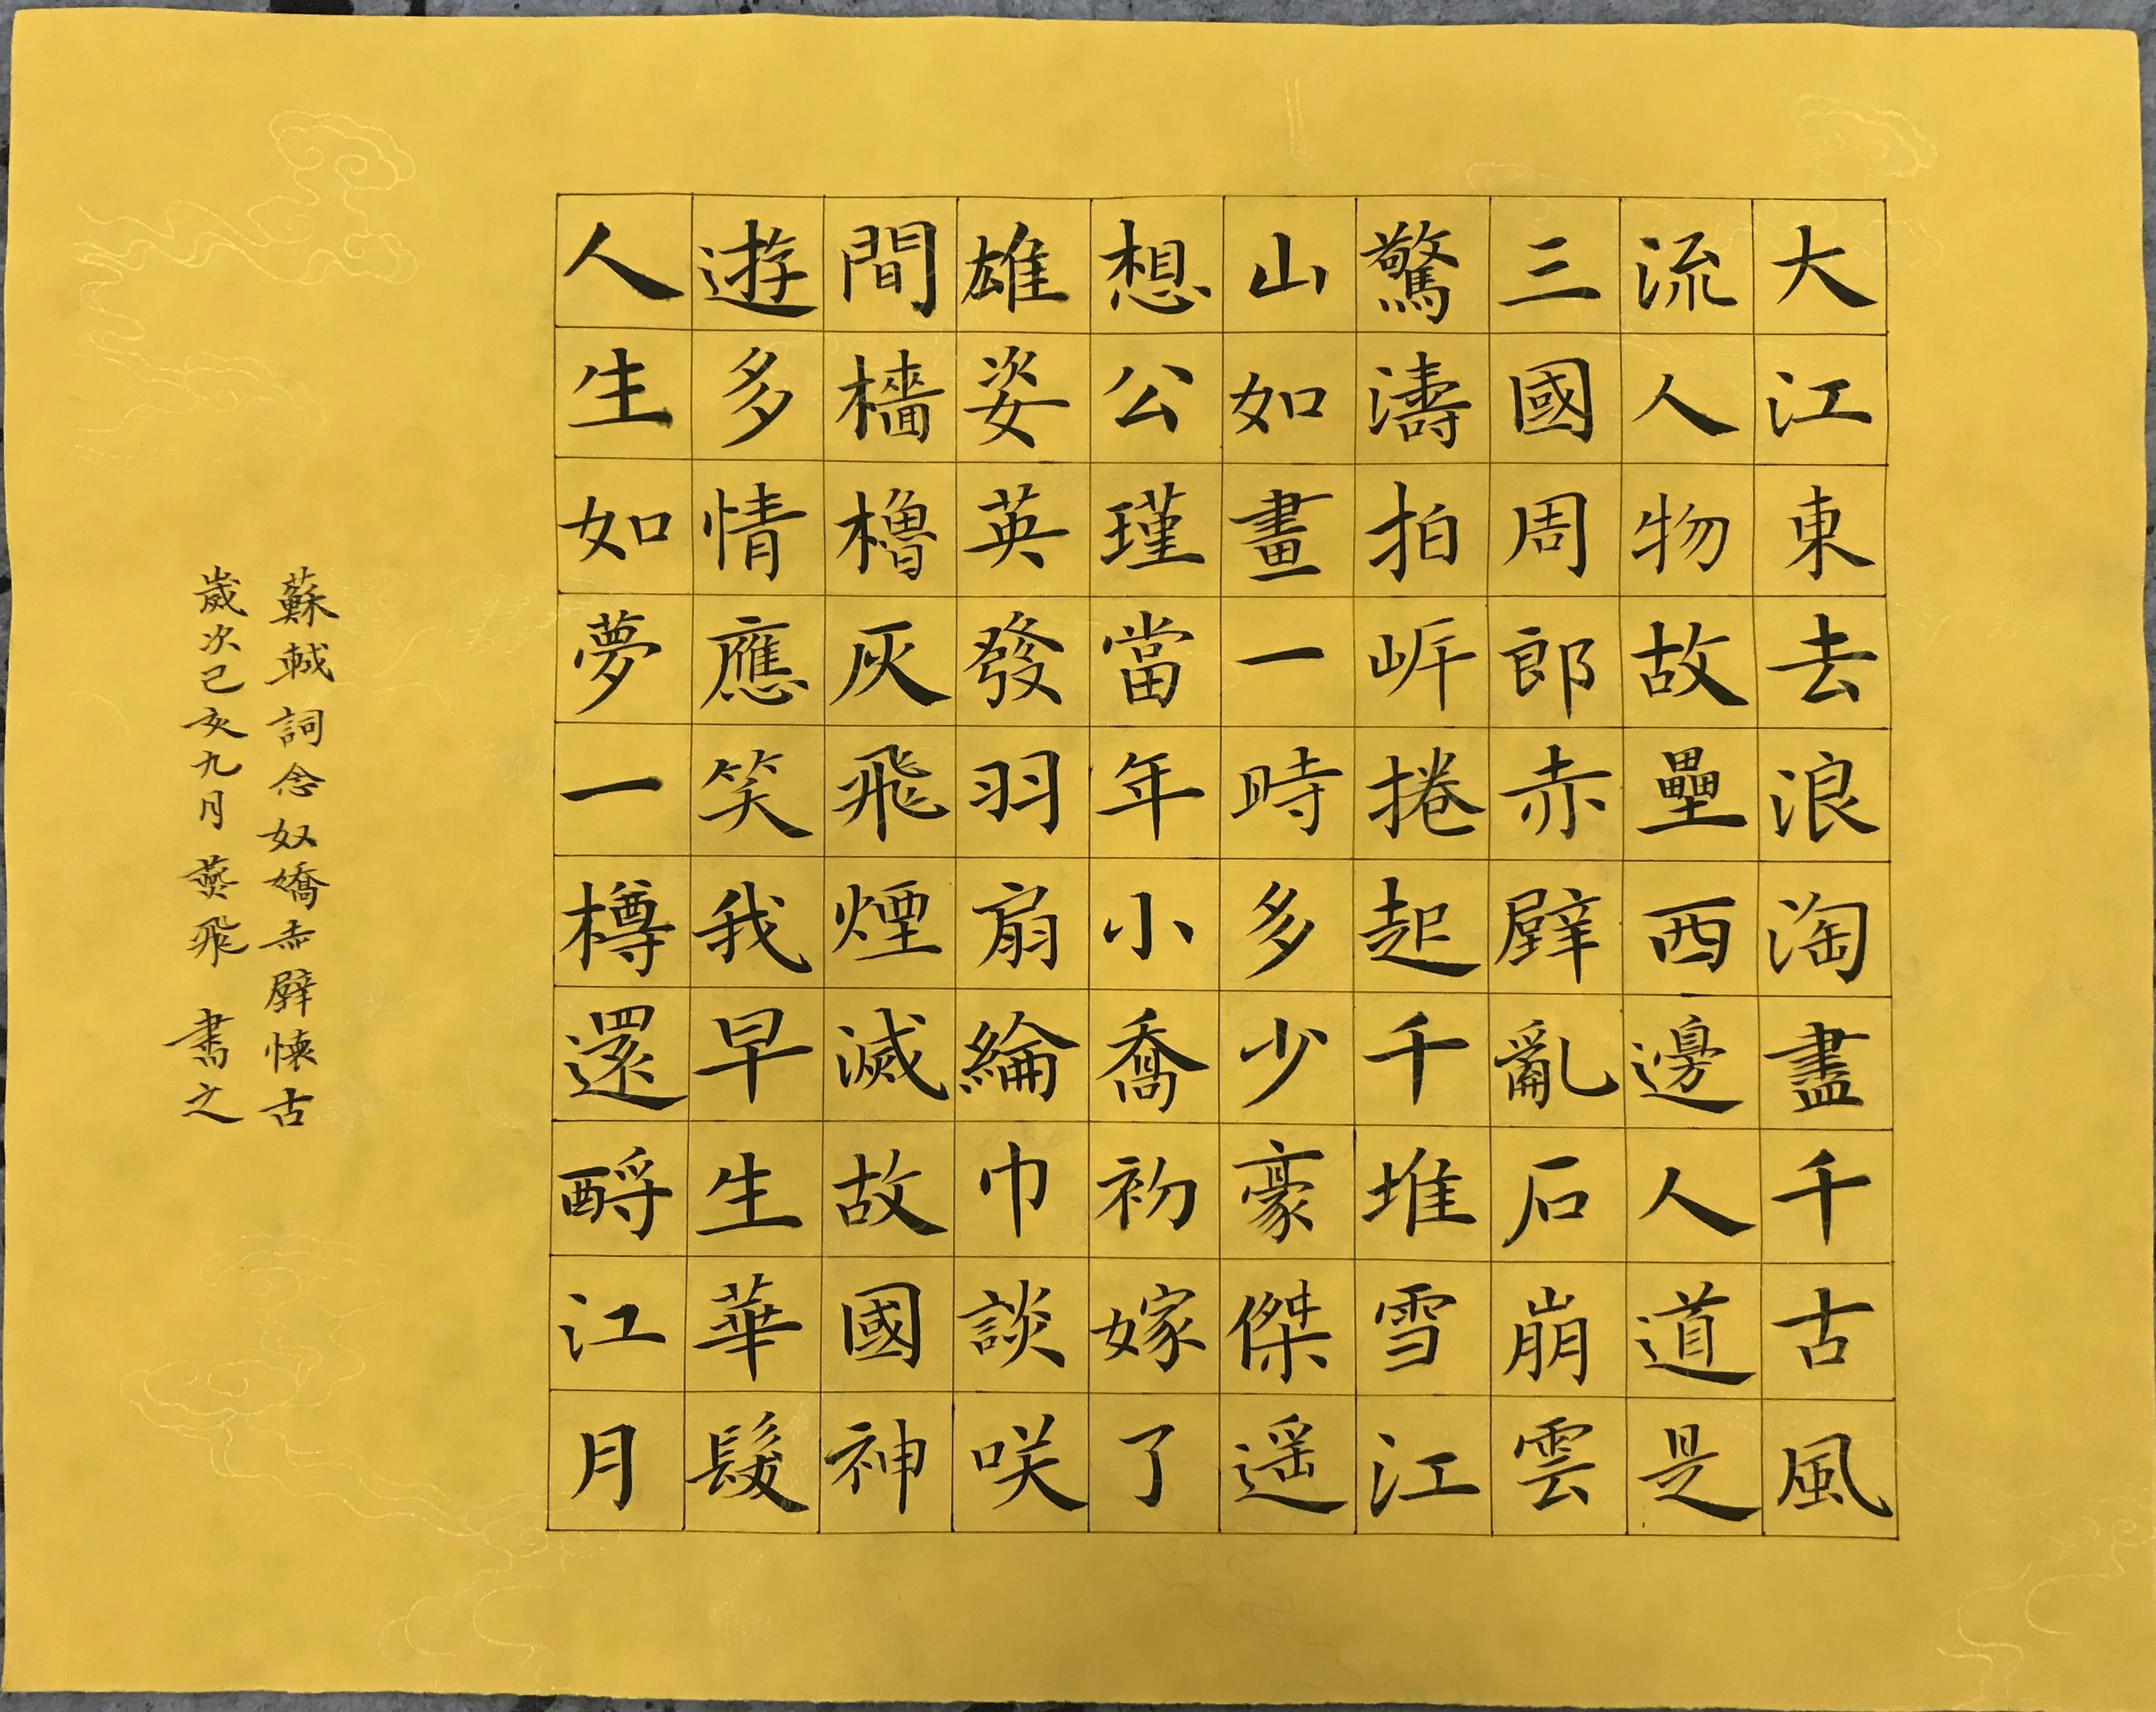 大江東去浪淘盡千古風
流人物故壘西邊人道是
三國周郎赤壁亂石崩雲
驚濤拍岸捲起千堆雪江
山如畫一時多少豪傑遥
想公瑾當年小喬初嫁了
雄姿英發羽扇綸巾談咲
間檣櫓灰飛煙滅故國神
遊多情應笑我早生華髮
人生如夢一樽還酹江月
蘇軾詞念奴嬌赤壁懷古
歲次己亥九月燕飛書之